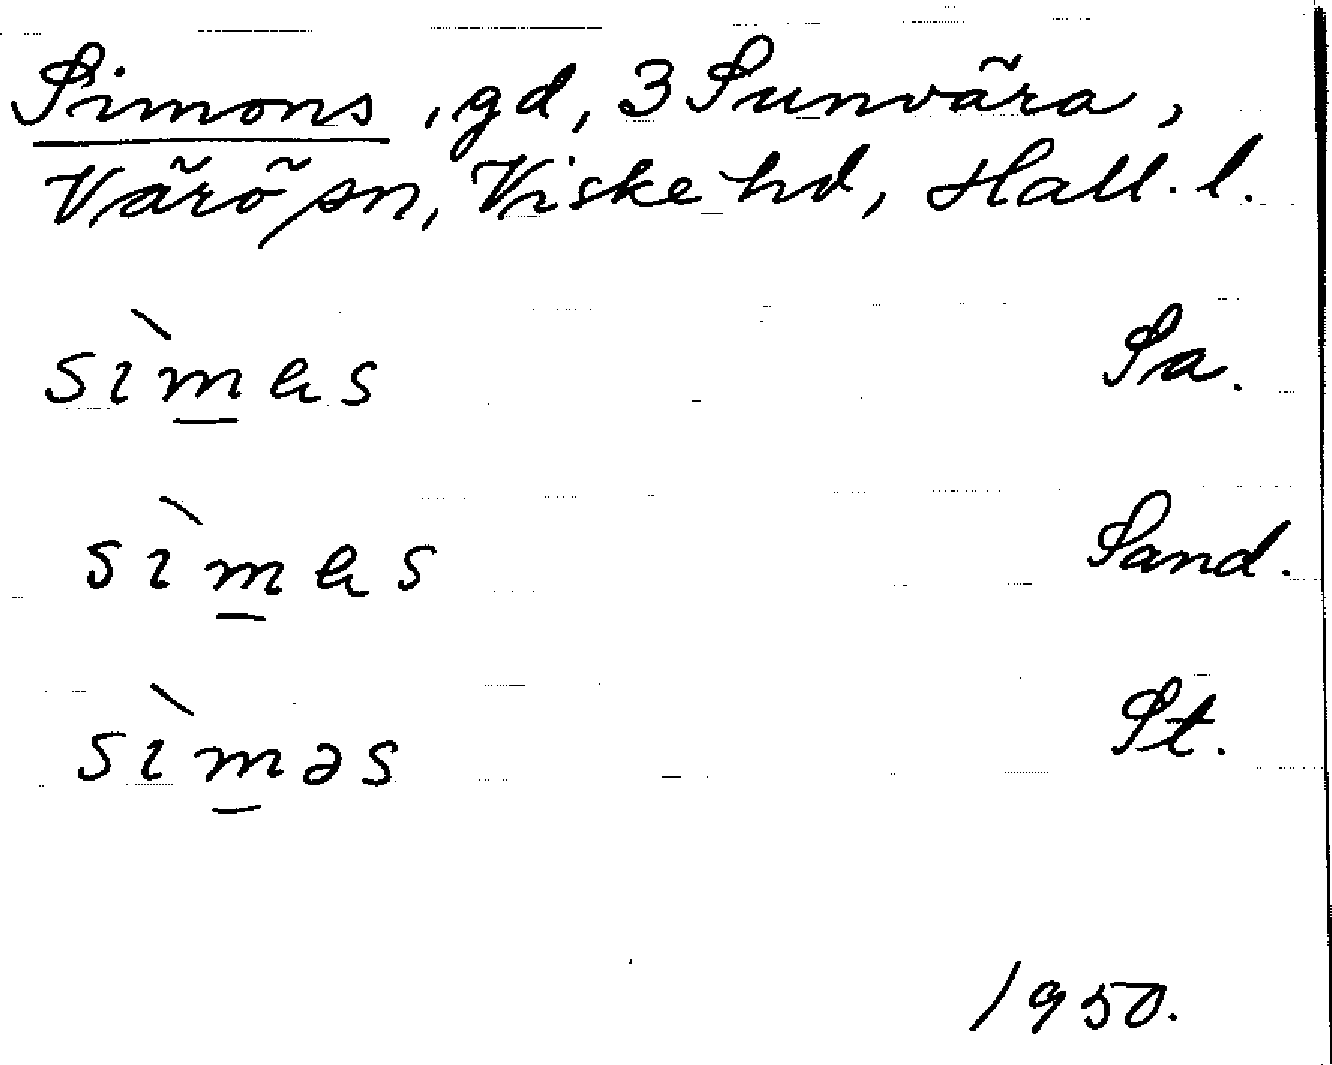 Simons, gd, 3 Sunvära,
Värö sn, Viske hd, Hall. l.
sìmɐs Sa.
sìmɐs Sand.
sìməs St.
1950.